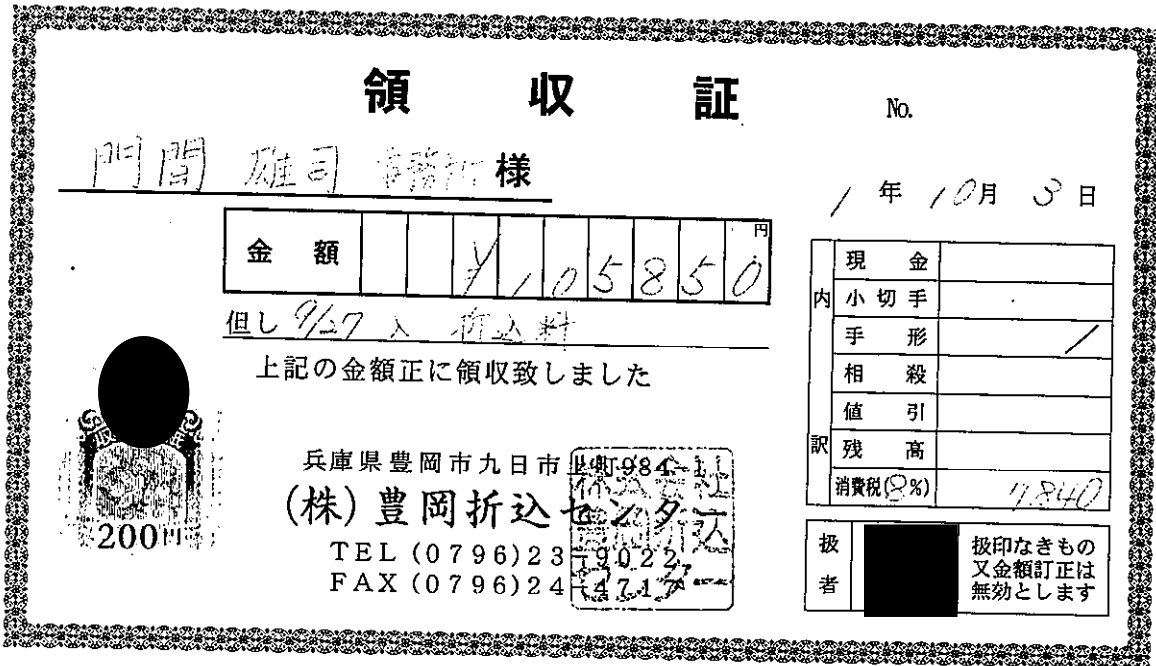 領収証
No.
門間 雄司 事務所 様
1年10月3日
金額 ¥105850円
但し 9/27 入 折込料
上記の金額正に領収致しました
200円
兵庫県豊岡市九日市上町984-1
(株)豊岡折込センター
TEL (0796)23-9022
FAX (0796)24-4717
内訳
現金
小切手
手形
相殺
値引
残高
消費税(8%) 7,840
扱者
扱印なきもの
又金額訂正は
無効とします